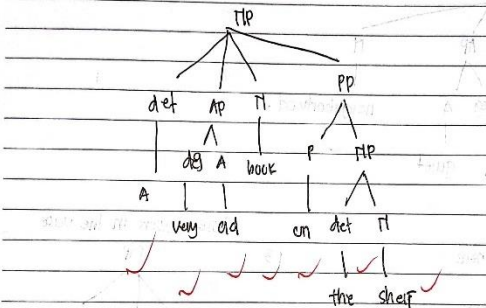 NP
det AP N PP
deg A book P NP
A very old on det N
the shelf